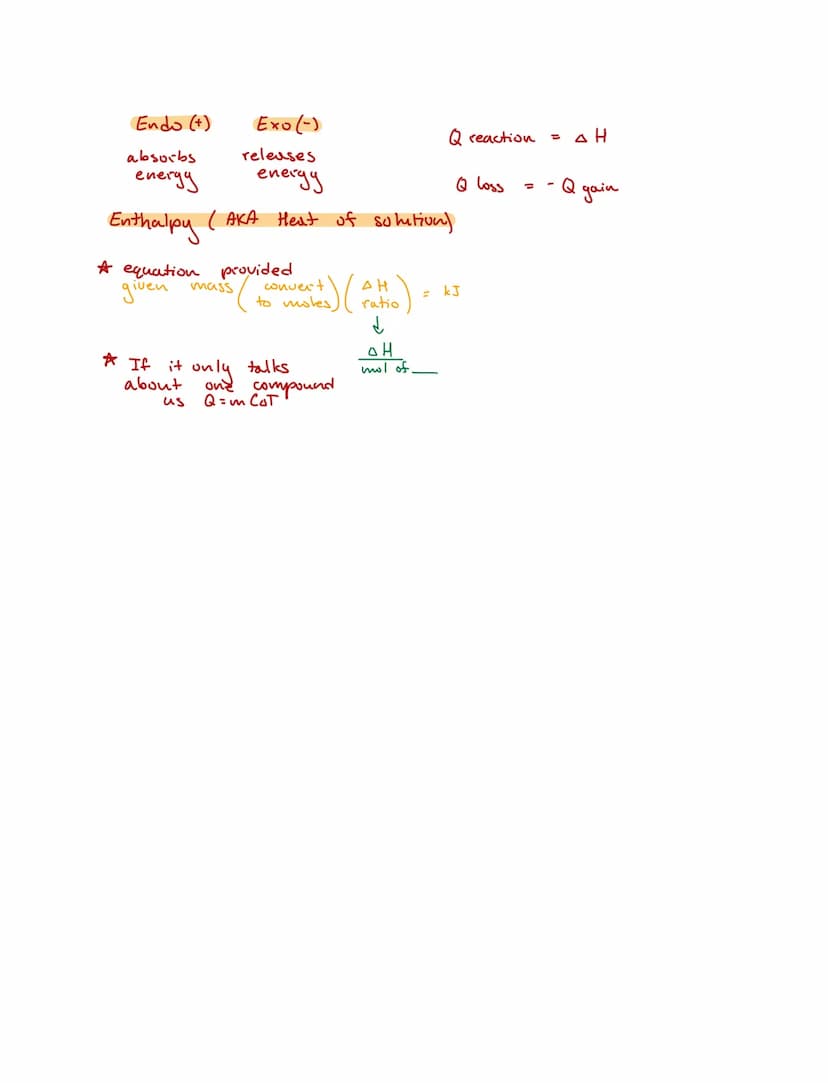 Endo (+) Exo (-)
absorbs releases
energy energy
Q reaction = Δ H
Q loss = - Q gain
Enthalpy ( AKA Heat of solution)
☆ equation provided
given mass ( convert to moles ) ( Δ H ratio ) = kJ
↓
ΔH
mol of __
☆ If it only talks
about one compound
us Q = m CΔT